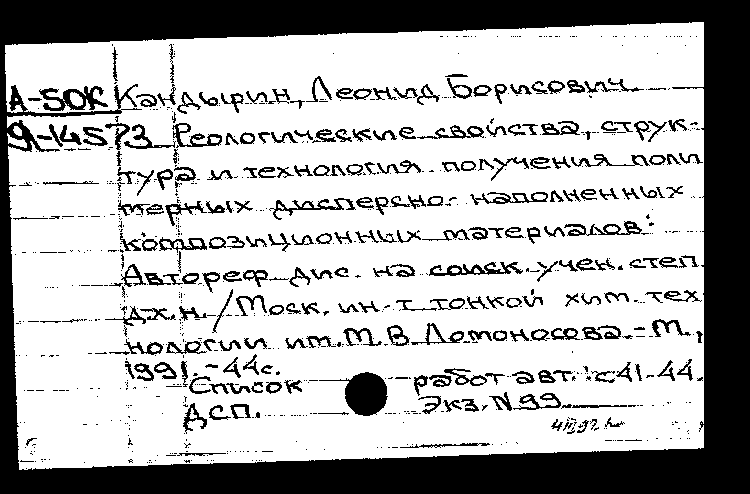 А-50К Кандырин, Леонид Борисович.
91-14573 Реологические свойства, струк-
тура и технология получения поли
мерных дисперсно-наполненных
композиционных материалов:
Автореф дис. на соиск. учен. степ.
д.х.н. / Моск. ин-т тонкой хим. тех
нологии им. М.В. Ломоносова. - М.,
1991. - 44с.
Список работ авт.: с 41-44.
ДСП. Экз. N 99
4 III 92